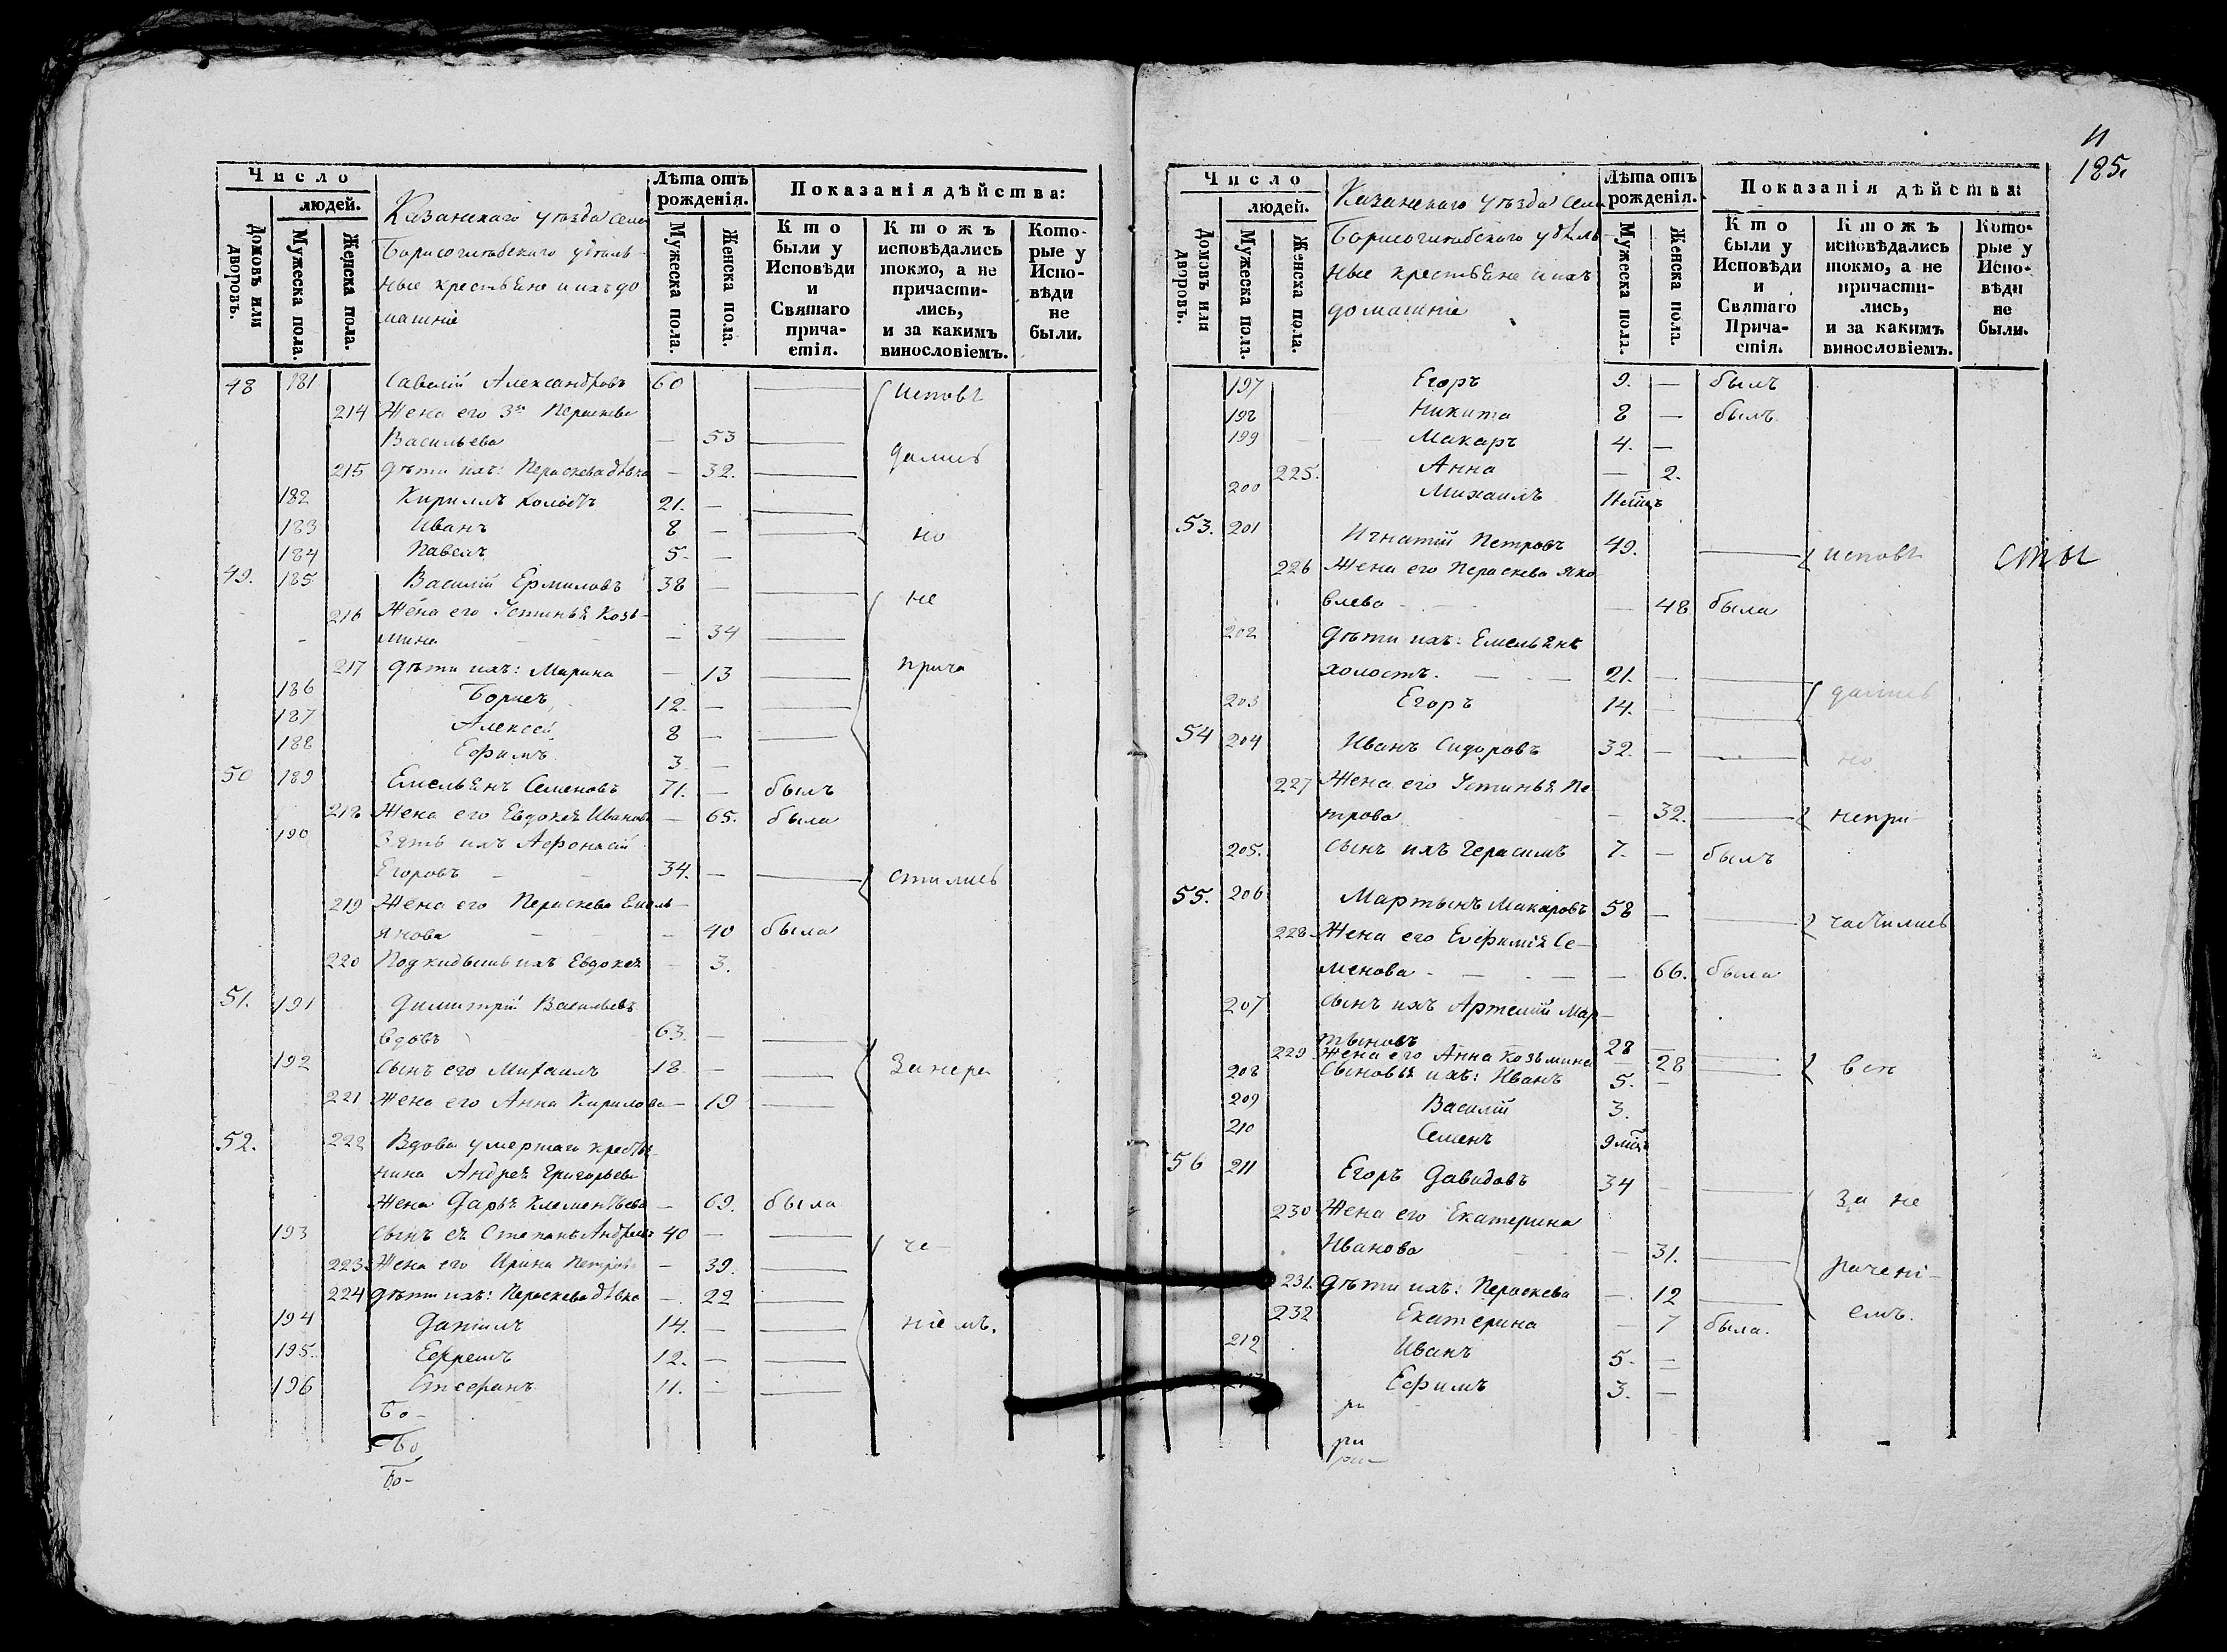 Число
людей.
Домовъ или дворовъ.
Мужеска пола.
Женска пола.
Казанскаго уѣзда села
Борисоглебскаго удѣль-
ные крестьяне и ихъ до
машніе
Лѣта отъ рожденія.
Мужеска пола.
Женска пола.
Показанія дѣйства:
Кто были у Исповѣди и Святаго прича-стія.
Ктожъ исповѣдались токмо, а не причасти-лись, и за какимъ винословіемъ.
Кото-рые у Испо-вѣди не были.
48 181 Савелій Александровъ 60 Исповѣ
214 Жена его 3я Параскева
Васильева — 53
215 Дѣти ихъ: Параскева дѣвка — 32. дались
182 Кирилъ холостъ 21. —
183 Иванъ 8 — но
184 Павелъ 5 —
49. 185 Василій Ермиловъ 38 — не
216 Жена его Устинья Козь-
мина — 34
217 Дѣти ихъ: Марина — 13 прича
186 Борисъ 12. —
187 Алексей 8 —
188 Ефимъ 3 —
50 189 Емельянъ Семеновъ 71. — былъ
218 Жена его Евдокея Иванов — 65. была
190 Зять ихъ Афонасій
Егоровъ — 34. — стились
219 Жена его Параскева Емель-
янова — 40 была
220 Подкидышъ ихъ Евдокея — 3.
51. 191 Димитрій Васильевъ
вдовъ 63. —
192 Сынъ его Михаилъ 18 — За нера
221 Жена его Анна Кирилова — 19
52. 222 Вдова умершаго крестья-
нина Андрея Григорьева
жена Дарья Клементьева — 69. была
193 Сынъ ея Степанъ Андреевъ 40 — че-
223. Жена его Ирина Петров — 39.
224 Дѣти ихъ: Параскева дѣвка — 22
194 Даніилъ 14. — ніемъ.
195. Ефремъ 12. —
196 Стефанъ 11. —
Бо-
Бо
Бо-
11
185.
Число
людей.
Домовъ или дворовъ.
Мужеска пола.
Женска пола.
Казанскаго уѣзда села
Борисоглебскаго удѣль-
ные крестьяне и ихъ
домашніе
Лѣта отъ рожденія.
Мужеска пола.
Женска пола.
Показанія дѣйства:
Кто были у Исповѣди и Святаго Прича-стія.
Ктожъ исповѣдались токмо, а не причасти-лись, и за какимъ винословіемъ.
Кото-рые у Испо-вѣди не были.
197 Егоръ 9. — былъ
198 Никита 8 — былъ
199 Макаръ 4. —
225. Анна — 2.
200 Михаилъ
53. 201 Игнатій Петровъ 49. исповѣ сты
226 Жена его Параскева Яко
влева — 48 была
202 Дѣти ихъ: Емельянъ
холостъ. — 21. —
203 Егоръ 14. — дались
54 204 Иванъ Сидоровъ 32. — но
227 Жена его Устинья Пе
трова — 32. непри
205. Сынъ ихъ Герасимъ 7. — былъ
55. 206 Мартынъ Макаровъ 58 —
228. Жена его Евфимія Се-
менова — 66. была
207 Сынъ ихъ Артемій Мар-
тыновъ 28 —
229 Жена его Анна Козьмина 28
208 Сыновья ихъ: Иванъ 5. —
209 Василій 3.
210 Семенъ
56 211 Егоръ Давидовъ 34 — за не
230 Жена его Екатерина
Иванова — 31.
231. Дѣти ихъ: Параскева — 12 рачені-
232 Екатерина — 7 была. емъ.
212 Иванъ 5. —
Ефимъ 3. —
ри
ри
ри-